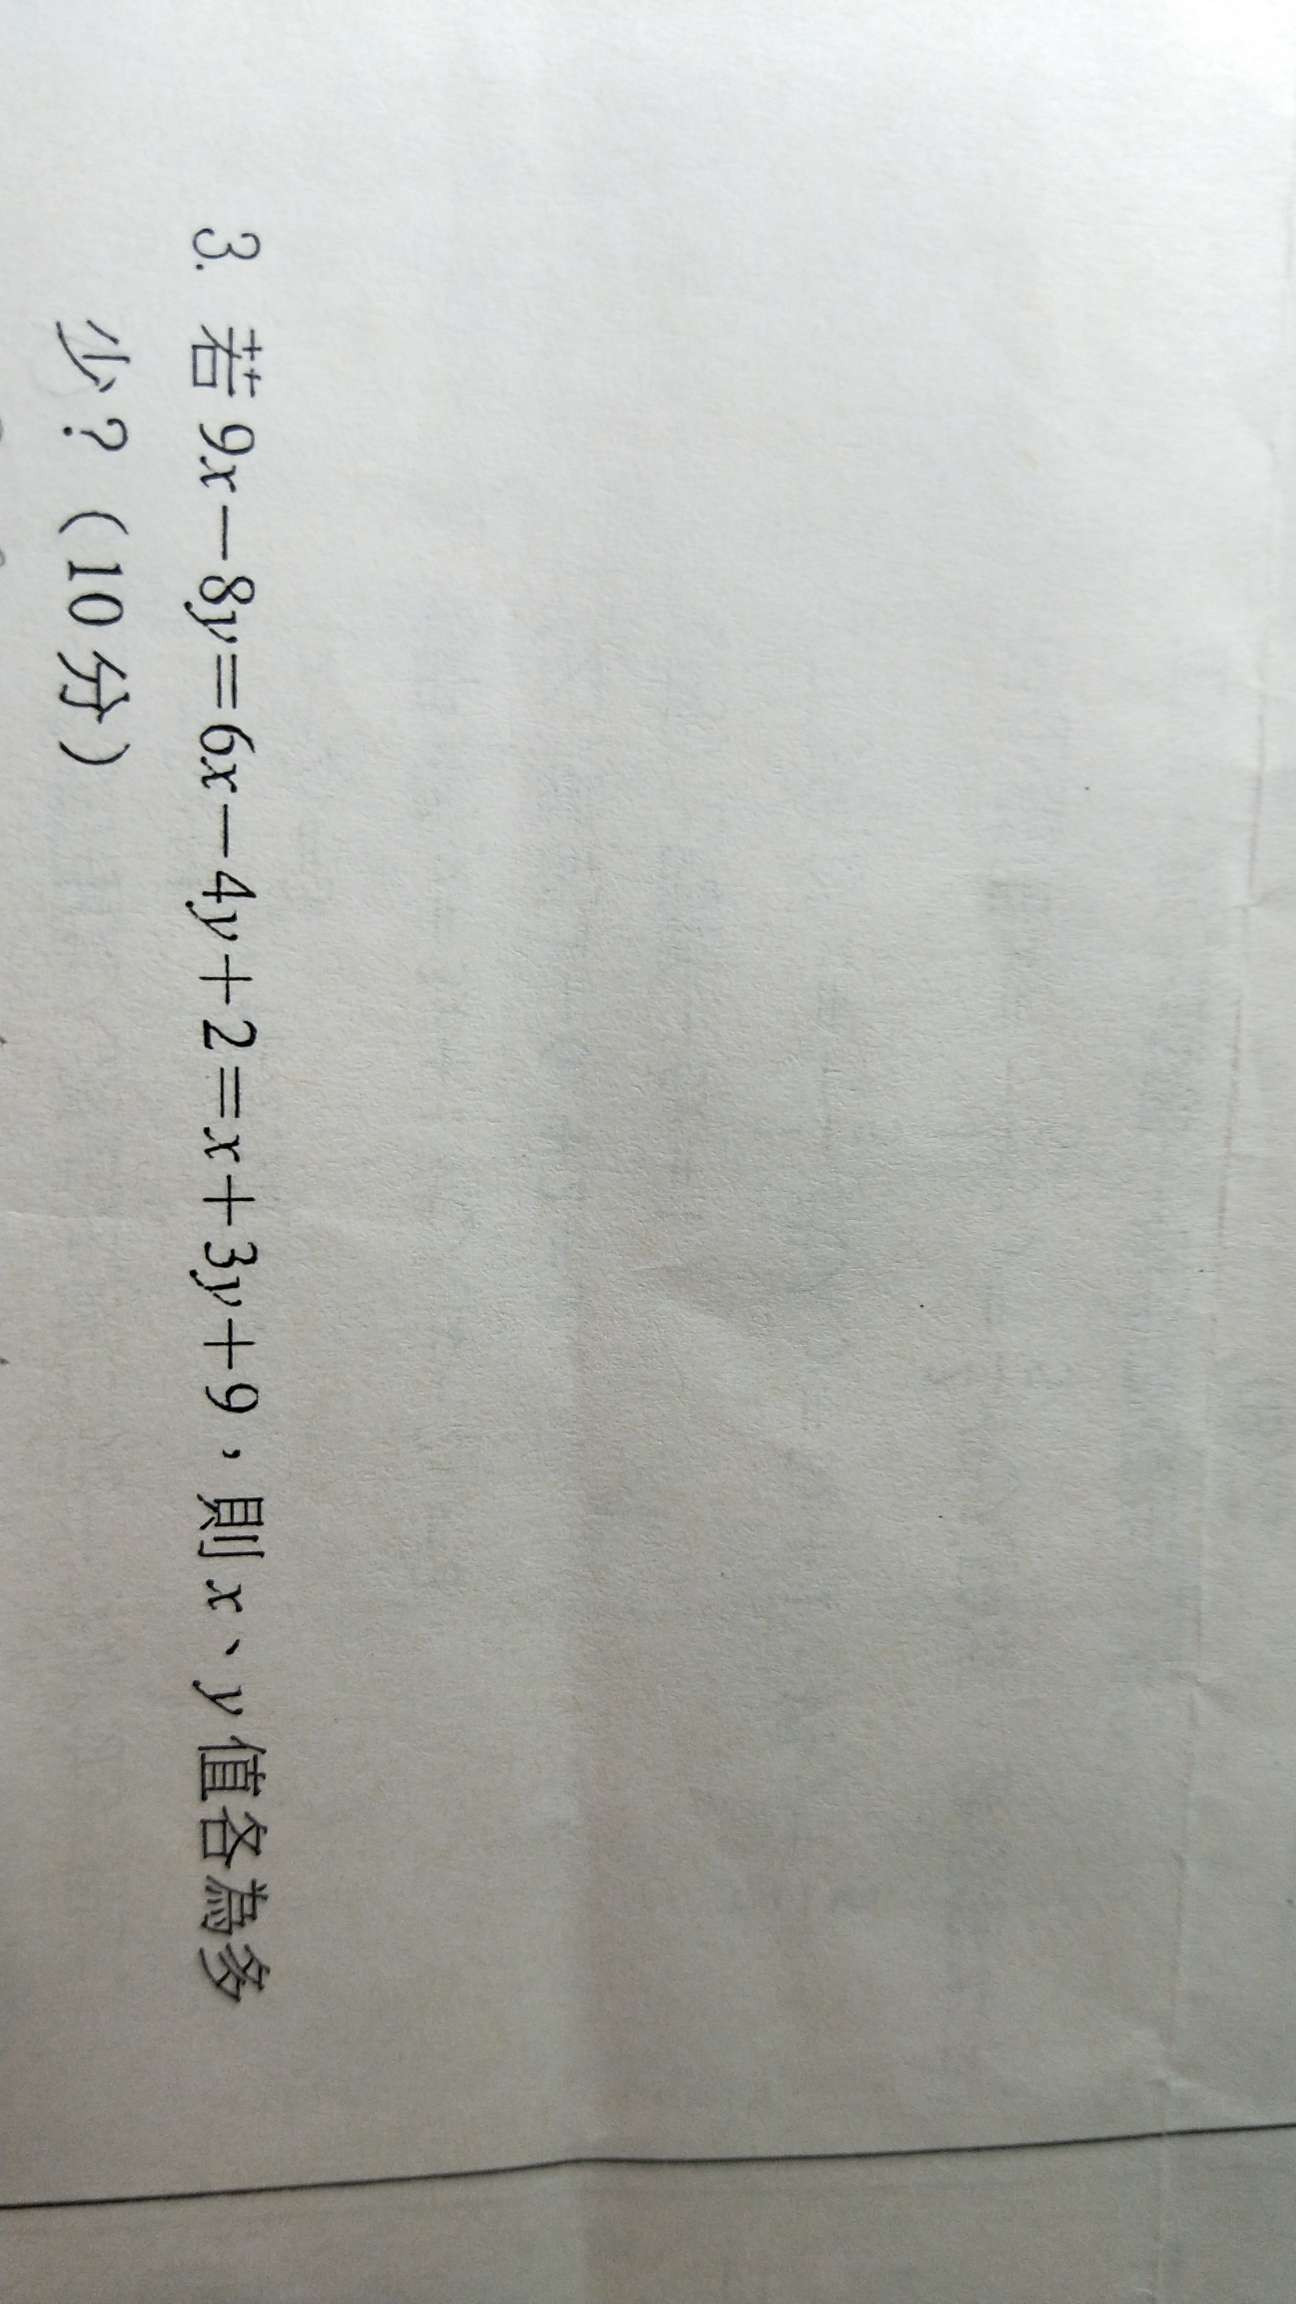 3. 若 9x－8y＝6x－4y＋2＝x＋3y＋9，則 x、y 值各為多
少？（10 分）